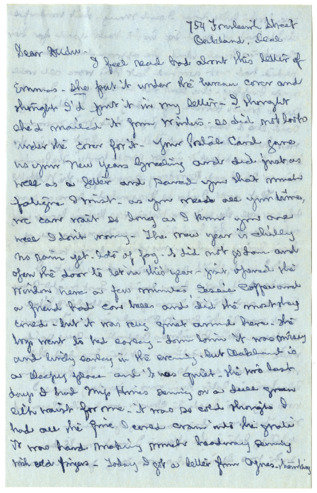 754 Street
Oakland,
Dear
I feel real bad about this letter of
Emmas - She put it under the bureau cover and
thought I'd put it in my letter - I thought
she'd mailed it from - so did not look
under the cover for it - Your Postal Card gave
us your New Years Greeting and did just as
well as a letter and saved you that much
fatigue I trust - as you need all your time,
we can wait as long as I know you are
well I don't worry - The new year is chilly
no rain yet - lots of fog - I did not go down and
open the door to let in this year - just opened the
window here a few minutes
a friend had cow bells and did the
- but it was very quiet around here - the
boys went to bed early - down town it was noisy
and lively early in the evening - but Oakland is
a sleepy place and I was quiet - the two last
days I had Miss sewing on a dark green
silk waist for me - it was so cold though I
had all the fire I could cram into the grate
it was hard making much headway sewing
with cold fingers - Today I got a letter from Agnes -